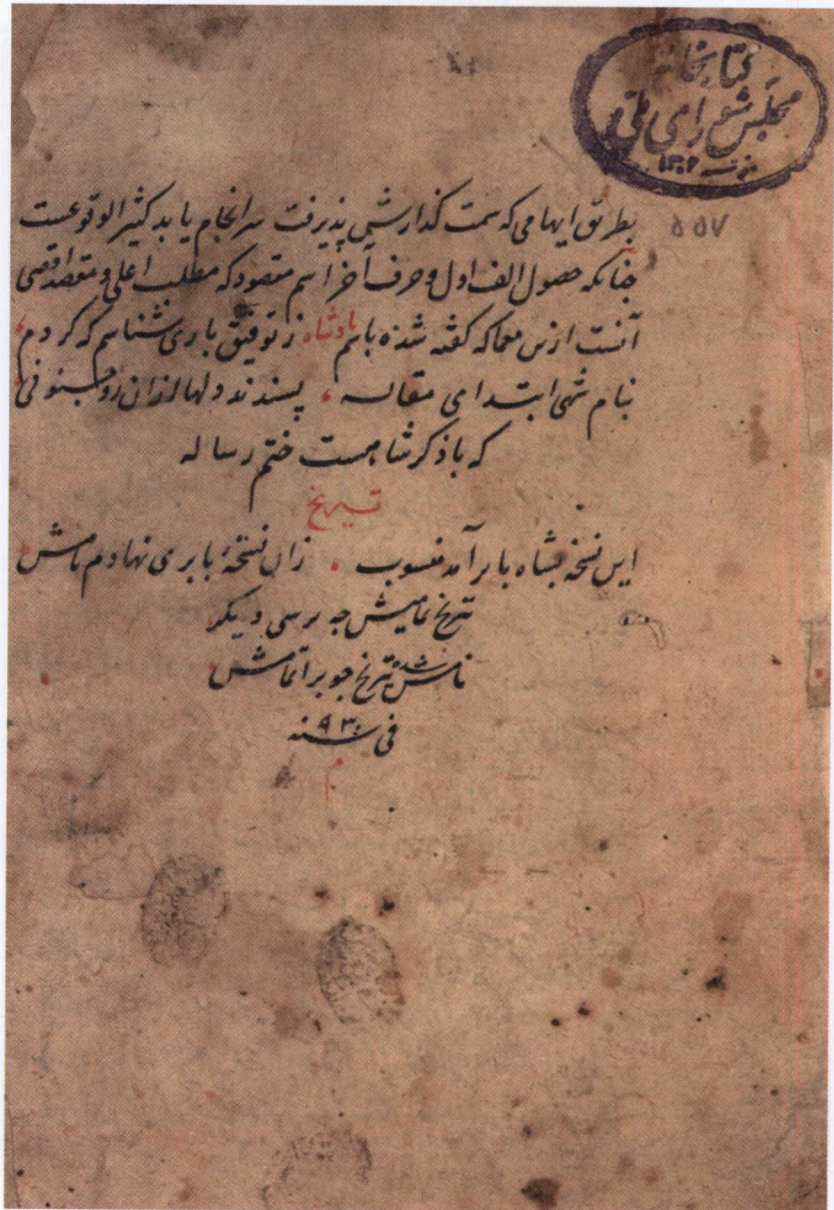 کتابخانه
مجلس شورای ملی
۱۳۰۲
۵۵۷
بطریق ایهامی که سمت گذارش پذیرفت سرانجام یابد کثیر الوقوعست
چنانکه حصول الف اول و حرف آخر اسم مقصود که مطلب اعلی و مقصد اقصی
آنست ازین معما که گفته شده باسم پادشاه ز توفیق باری شناسم که کردم
بنام شهی ابتدای مقاله پسندند دلها ازان رو
که با ذکر شاهست ختم رساله
تاریخ
این نسخه بشاه بابر آمد منسوب زان نسخهٔ بابری نهادم نامش
تاریخ تمامیش چه پرسی دیگر
نامش شده تاریخ چو بر اتمامش
فی سنه ۹۳۰
م